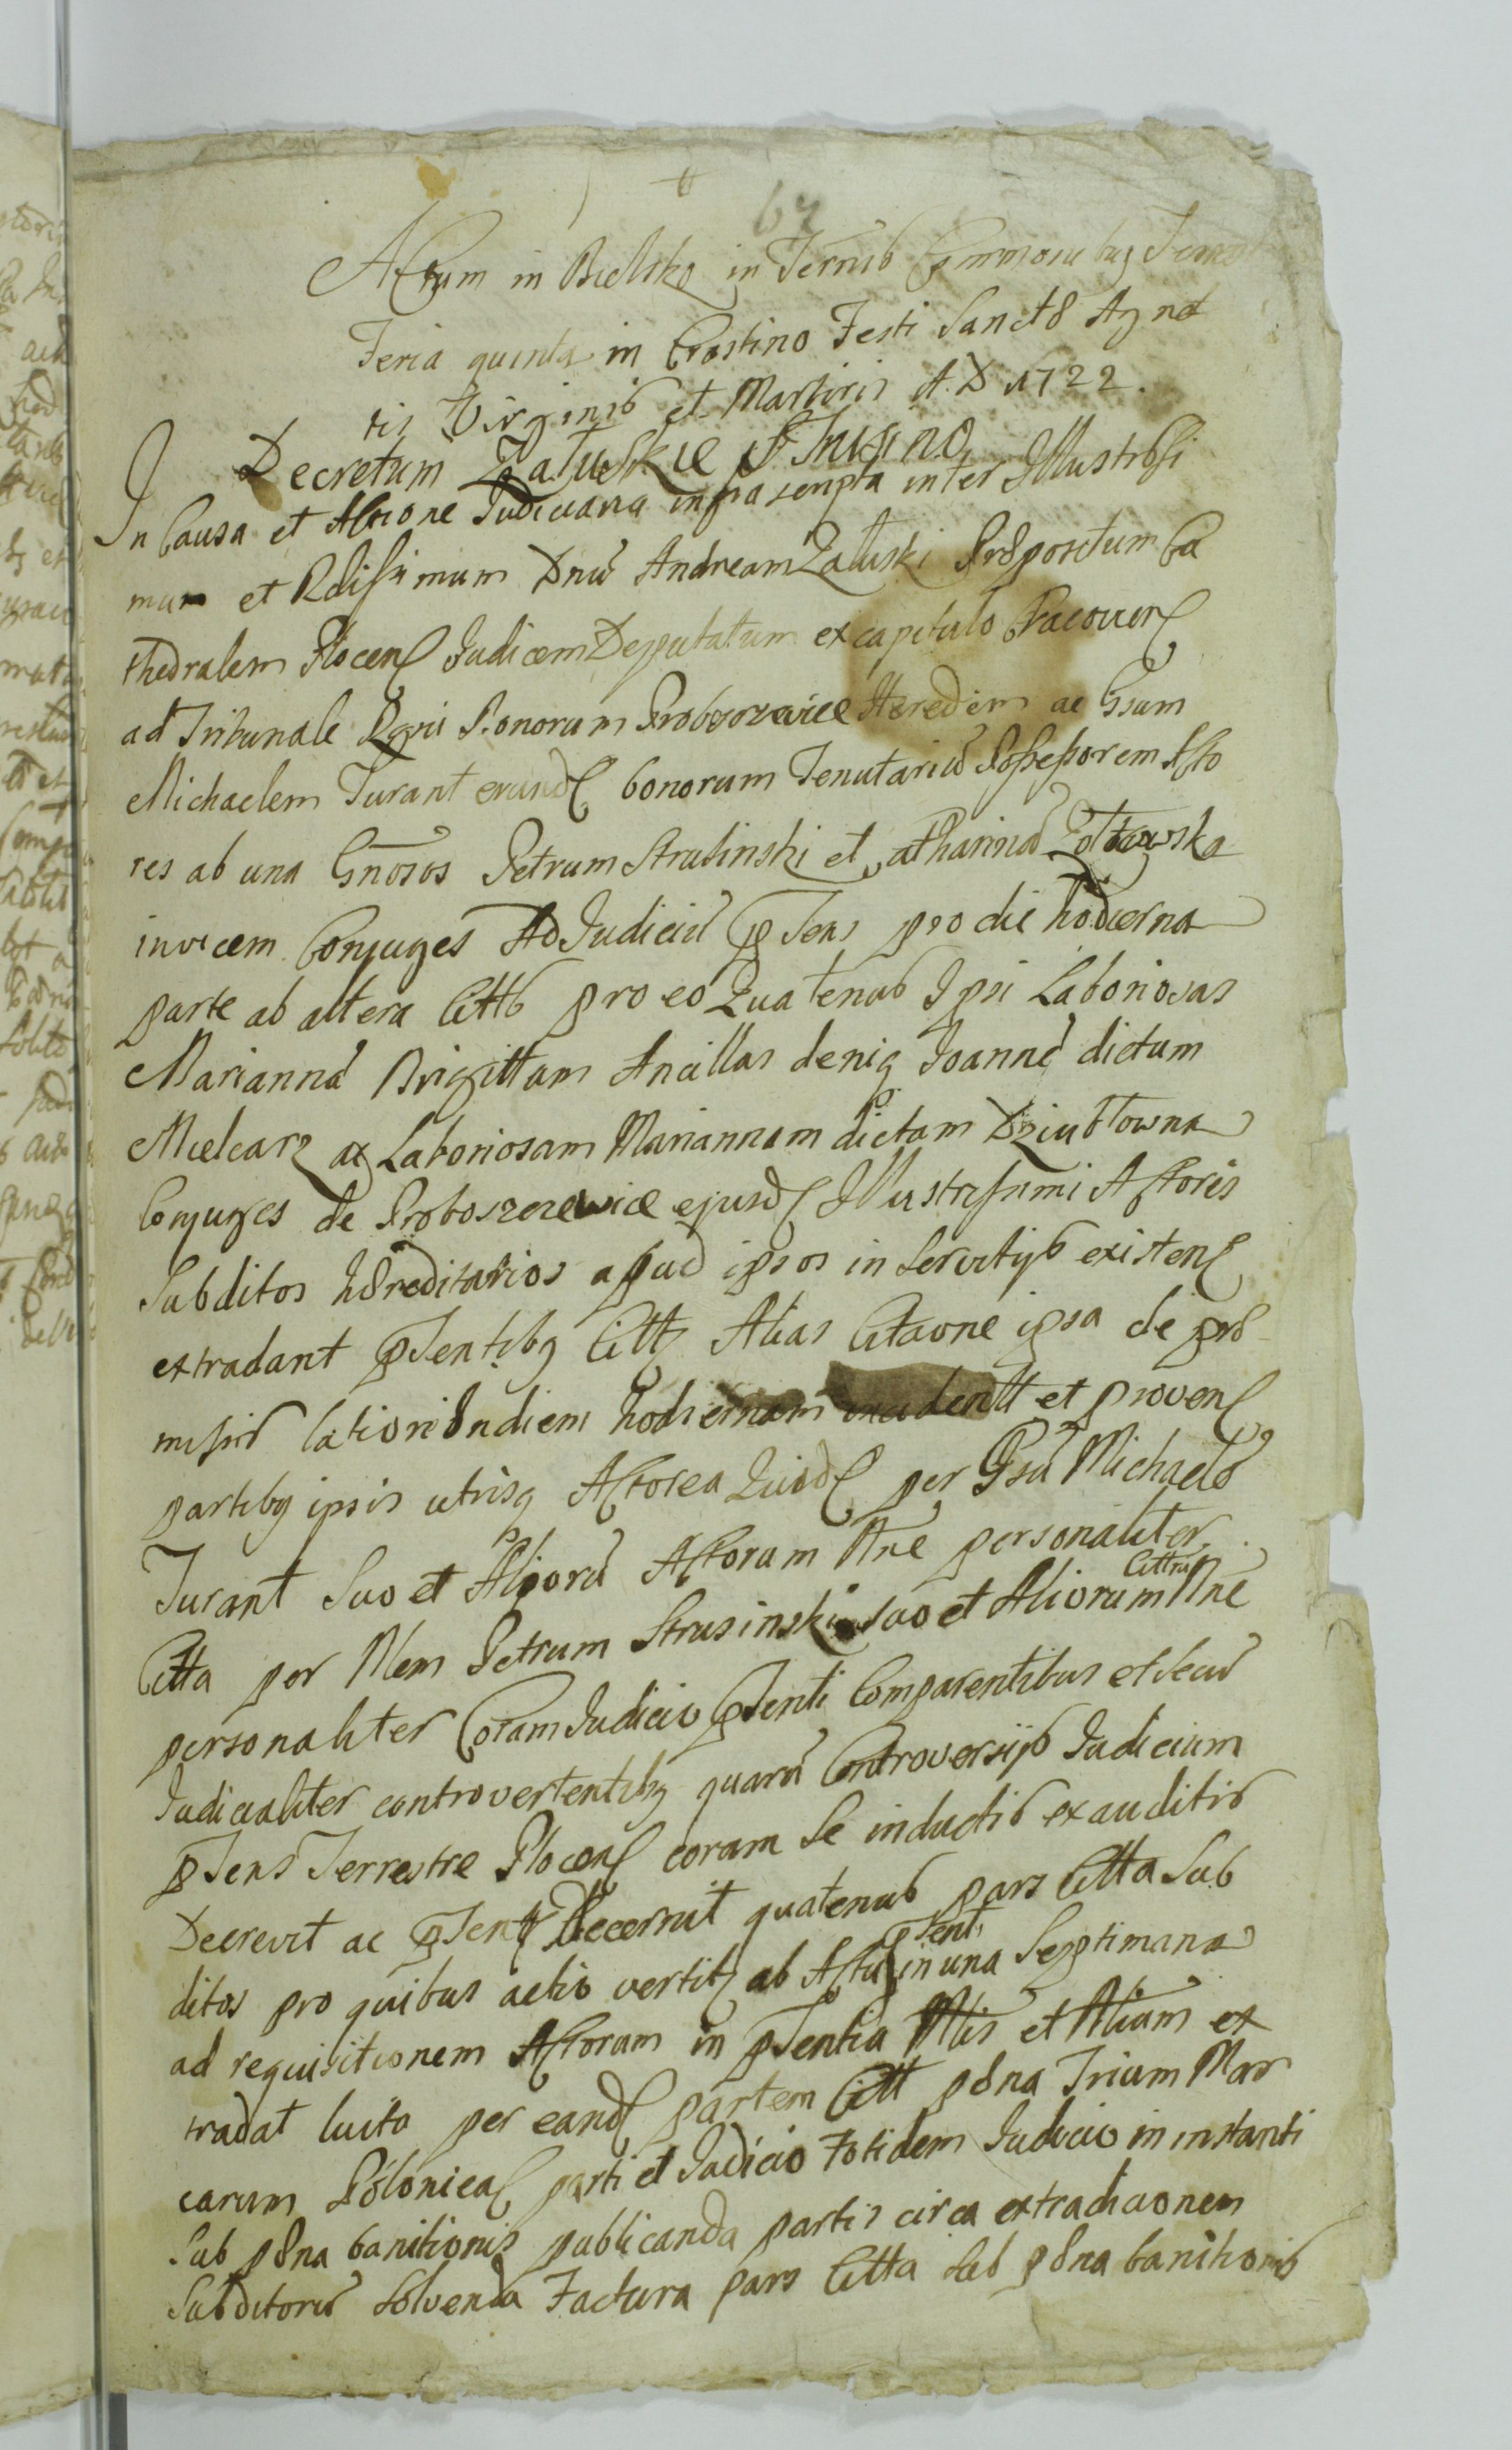 67
Actum in Bielsko in Terris Communibus Terrest
Feria quinta in Crastino Festi Sanctæ Agne
tis Virginis et Martiris A. D 1722.
Decretum Załuskie
In Causa et Actione Judiciaria infrascripta inter Illustrissi
mum et Rdissimum Dnũ Andream Załuski Præpositum Ca
thedralem Plocen Judicem Deputatum ex capitulo Cracovien
ad Tribunale Regni Bonorum Proboszczewice Heredem ac Gsum
Michaelem Turant eorund bonorum Tenutariũ Possessorem Acto
res ab una Gnosos Petrum Strusinski et Catharinã Zołtowska
invicem Conjuges Ad Judiciũ pTens pro die hodierna
parte ab altera Cittos pro eo Quatenus Ipsi Laboriosas
Mariannã Brigittam Ancillas deniq Joannẽ dictum
Mielcarz ac Laboriosam Mariannam dictam Dziubłowna
Conjuges de Proboszczewice ejusd Illustrissimi Actoris
Subditos hæreditarios apud ipsos in Servitijs existen
extradant pTentibq Citt Alias Citaone ipsa de præ
missis latiori In diem hodiernam incident et proven
partibq ipsis utrisq Actorea Quid per Gsũ Michaelẽ
Turant Suo et Aliorũ Actorum Nne personaliter
Citta per Nlem Petrum Strusinski suo et Aliorum Cittrũ Nne
personaliter Coram Judicio pTenti Comparentibus et Secũ
Judicialiter controvertentibq quarũ Controversijs Judicium
pTens Terrestre Plocen coram Se inductis exauditis
Decrevit ac pTent Decernit quatenus pars Citta Sub
ditos pro quibus actio vertit ab Actu pTenti in una Septimana
ad requisitionem Actorum in pTentia Nlis et Alium ex
tradat luito per eand partem Citt pæna Trium Mar
carum Polonical parti et Judicio totidem Judicio in instanti
Sub pæna banitionis publicanda partis circa extradicionem
Subditorũ Solvenda Factura pars Citta Sub pæna banitionis